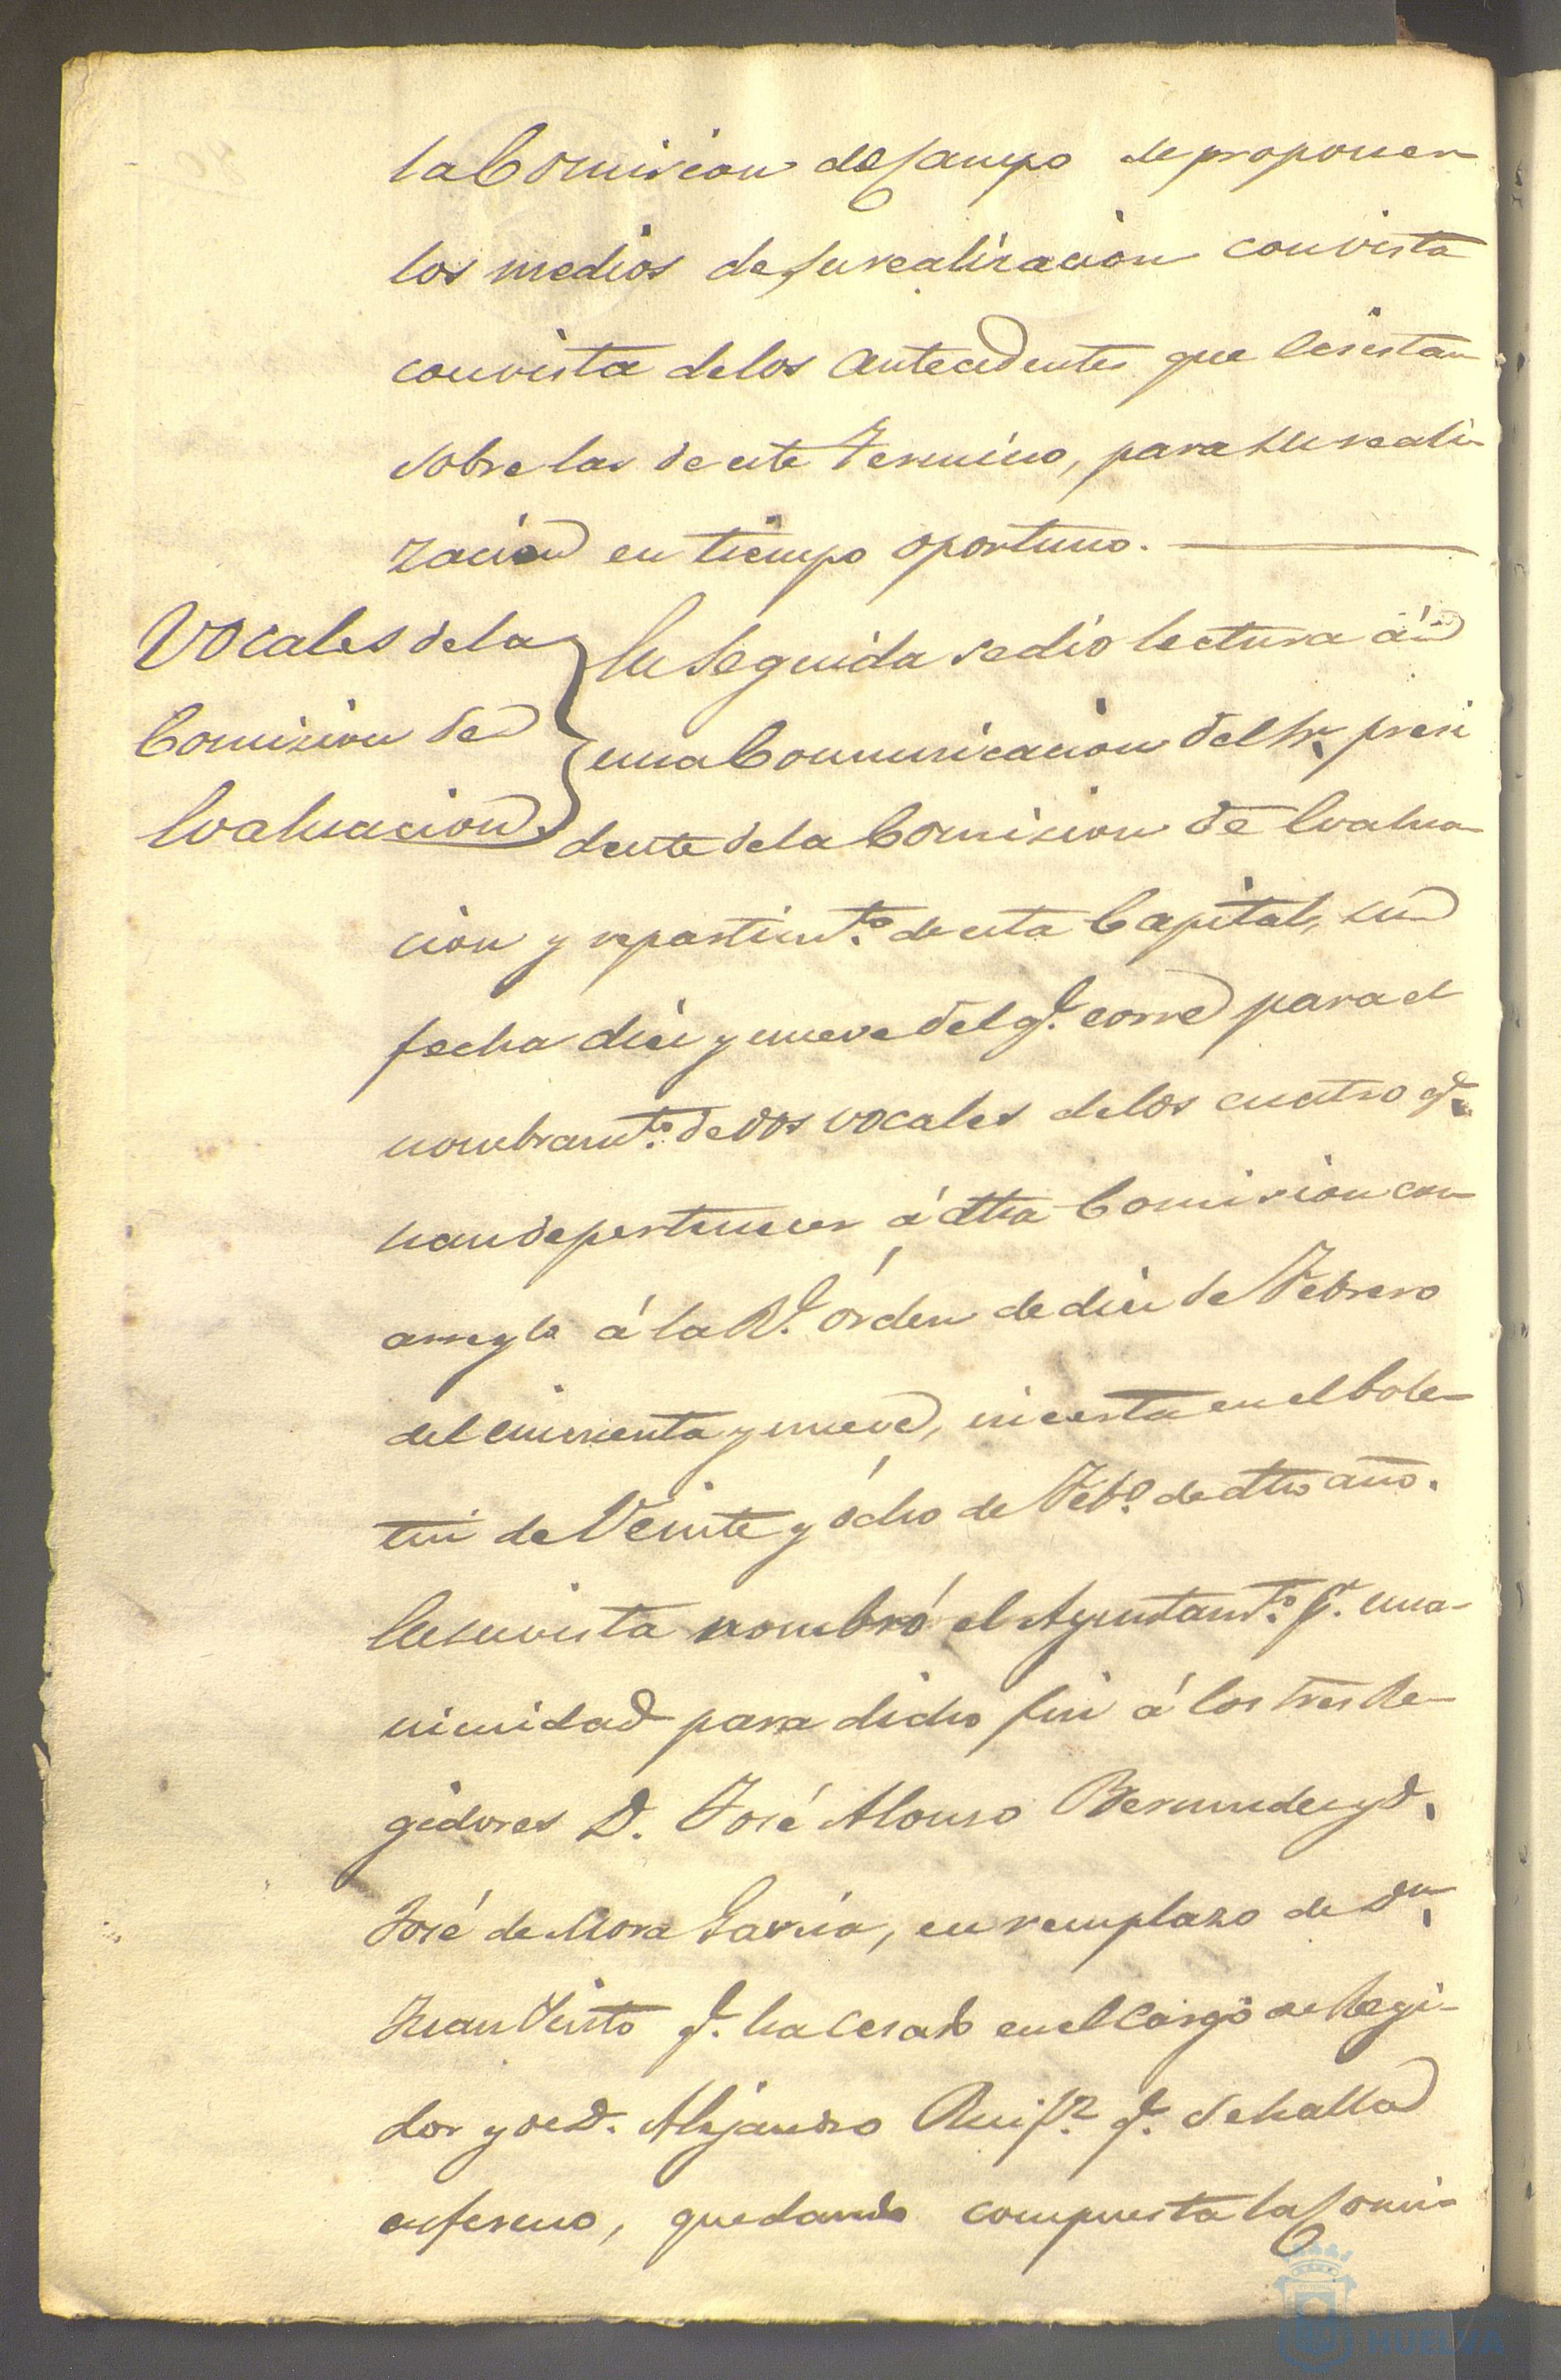 la Comision de Campo de proponer
los medios de su realizacion con vista
con vista de los antecedentes que ecsistan
sobre las de este Termino, para su reali-
zacion en tiempo oportuno.
Vocales de la
Comision de
Evaluacion
En seguida se dio lectura á
una Comunicacion del Sr. presi
dente de la Comision de Evalua-
cion y repartimto. de esta Capital, su
fecha diez y nueve del q.e corre para el
nombramto. de dos vocales de los cuatro q.e
han de pertenecer á dha Comision con
arreglo á la Rl. órden de diez de Febrero
del cincuenta y nueve, incerta en el bole-
tin de Veinte y ócho de Febo. de dho año.
En su vista nombró el Ayuntamto. pr. una-
nimidad para dicho fin á los tres Re-
gidores D. José Alonso Bermudez y D.
José de Mora Garcia, en remplazo de Dn.
Juan Pinto q.e ha cesado en el Cargo de Regi-
dor y de D. Alejandro q.e se halla
enfermo, quedando compuesta la Comi-
HUELVA